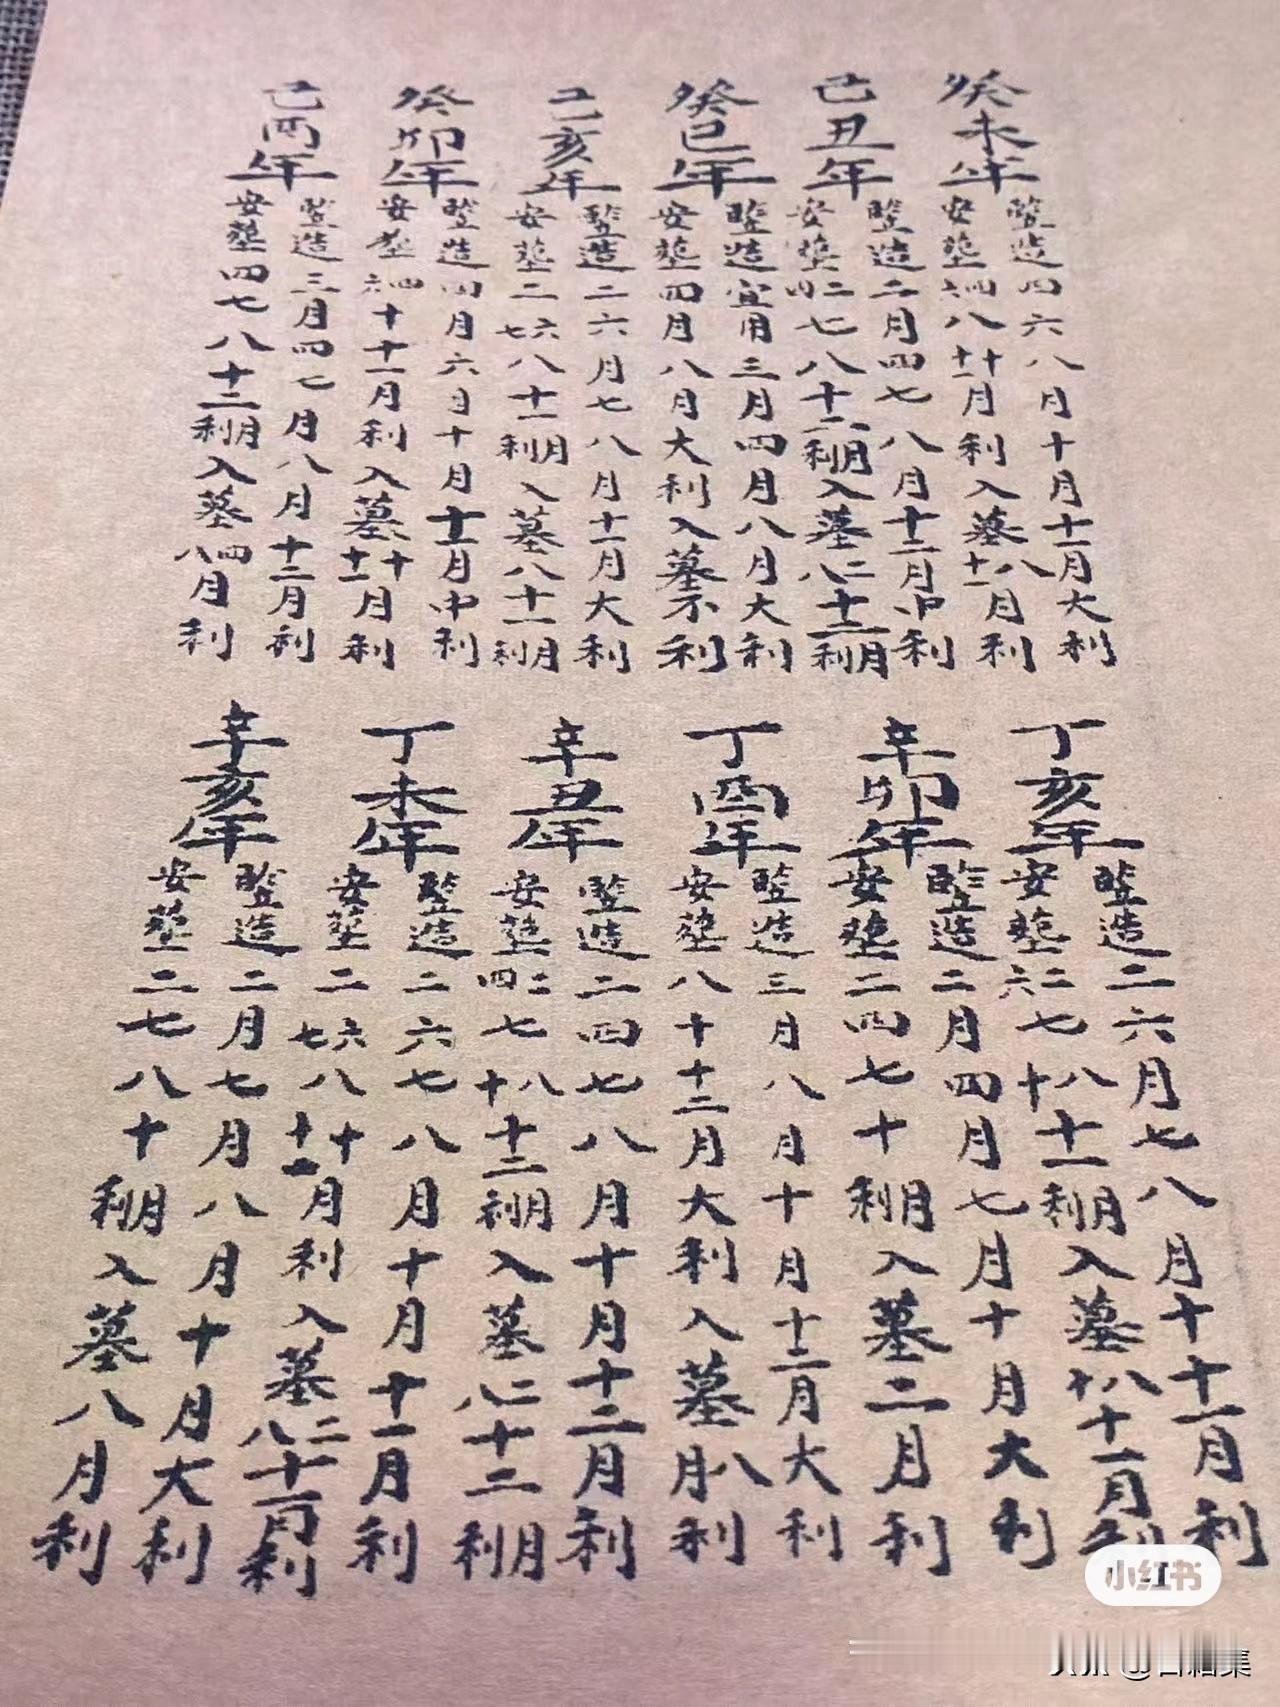 癸未年
竪造四六八月十月十一月大利
安塟四六八十十一月利入墓八十一月利
己丑年
竪造二月四七八月十二月中利
安塟二四七八十二月利入墓二八十二月利
癸巳年
竪造宜用三月四月八月大利
安塟四月八月大利入墓不利
己亥年
竪造二六月七八月十一月大利
安塟二六七八十一月利入墓八十一月利
癸卯年
竪造四月六月十月十一月中利
安塟四六十十一月利入墓十十一月利
己酉年
竪造三月四七月八月十二月利
安塟四七八十二月利入墓四八月利
丁亥年
竪造二六月七八月十十一月利
安塟二六七八十十一月利入墓八十十一月利
辛卯年
竪造二月四月七月十月大利
安塟二四七十月利入墓二月利
丁酉年
竪造三月八月十月十二月大利
安塟八十十二月大利入墓八月利
辛丑年
竪造二四七八月十月十二月利
安塟二四七八十十二月利入墓二八十二月利
丁未年
竪造二六七八月十月十一月利
安塟二六七八十十一月利入墓二八十一月利
辛亥年
竪造二月七月八月十月大利
安塟二七八十月利入墓八月利
小红书